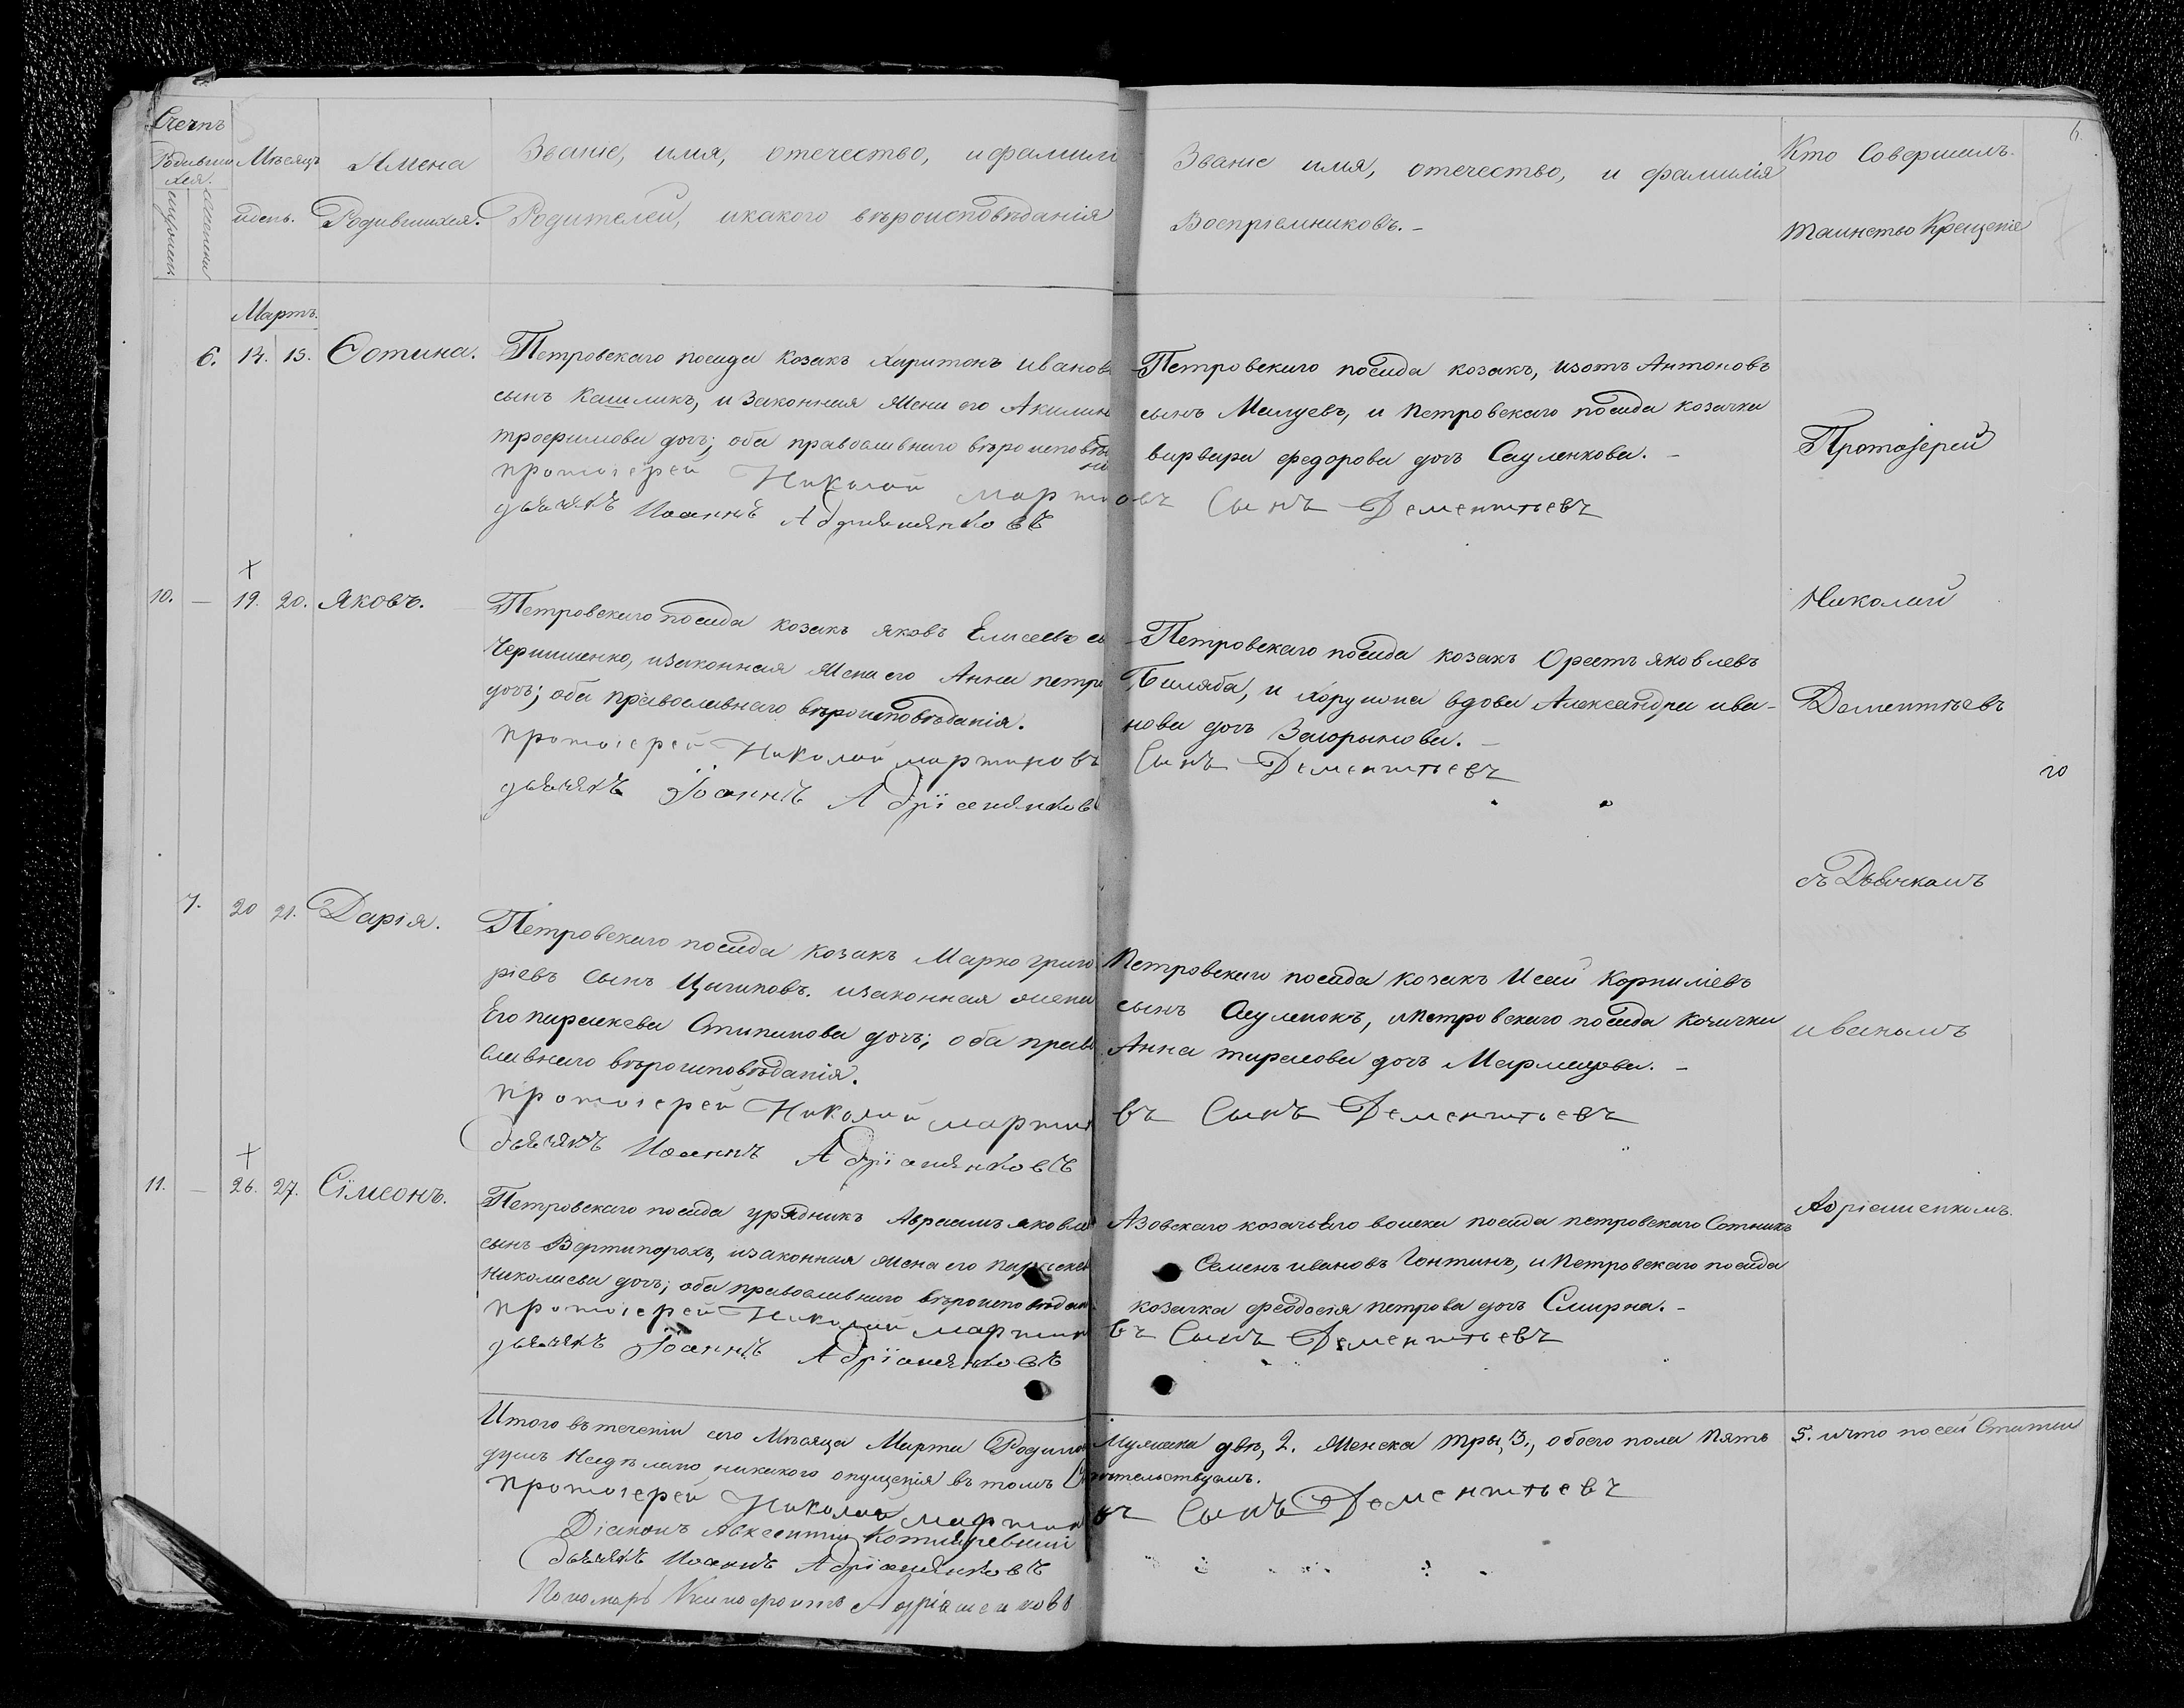 Счетъ
Родивших
ся.
Мѣсяцъ
идень.
Имена
Родившихся.
Званіе, имя, отечество, ифамилі
Родителей, икакого вѣроисповѣданія
Званіе имя, отечество, и фамилія
Воспріемниковъ. –
Кто Совершилъ.
таинство Крещеніе
6.
Мартъ.
6. 14. 15. Фотина.
Петровскаго посада козакъ Харитонъ Иванов
сынъ Кашликъ, и Законная Жена его Акилин
трофимова дочь; оба православнаго вѣроисповѣда
ні
протоіерей Николай март
дьячкъ Иоаннъ Адріяшянковъ
Петровскаго посада козакъ, изотъ Антоновъ
сынъ Мацуевъ, и петровскаго посада козачка
варвара федорова дочь Сауленкова. –
овъ Сынъ Дементьевъ
Протоіерей
10. – 19. 20. Яковъ.
Петровскаго посада козакъ яковъ Елисеевъ сы
Чернишенко, изаконная Жена его Анна петро
дочь; оба православнаго вѣроисповѣданія.
протоіерей Николай мартиновъ
дьячкъ Іоаннъ Адріяшянков
Петровскаго посада козакъ Орестъ яковлевъ
Биляба, и Хорунжа вдова Александра ива-
нова дочь Загорынова. –
Сынъ Дементьевъ
Николай
Дементьевъ
20
съ Дьячкомъ
7. 20 21. Дарія.
Петровскаго посада козакъ Марко григо
ріевъ сынъ Цыгановъ. изаконная жена
Его параскева Стипанова дочь; оба право
славнаго вѣроисповѣданія.
протоіерей Николай мартин
дьячкъ Иоаннъ Адріяшянковъ
Петровскаго посада козакъ Исай Корниліевъ
сынъ Сауленокъ, ипетровскаго посада козачка
Анна тарасова дочь Мармазова. –
въ Сынъ Дементьевъ
иваномъ
11. – 26. 27. Сїмеонъ.
Петровскаго посада урядникъ Авраамъ яковле
сынъ Вертипорохъ, изаконная Жена его параскев
Николаева дочь; оба православнаго вѣроисповѣдан.
протоіерей Николай мартин
дьячкъ Іоаннъ Адріяшянковъ
Азовскаго козачьЕго воиска посада петровскаго Сотникъ
Семенъ ивановъ Гонтинъ, и Петровскаго посада
козачка феодосія петрова дочь Смирна. –
въ Сынъ Дементьевъ
Адріяшенкомъ.
Итого въ теченіи сего Мѣсяца Марта Родило
Мужеска двѣ, 2. Женска тры, 3., обоего пола пять
5. ичто посей Статьи
душъ Несдѣлано никакого опущенія въ томъ Сви
дѣтельствуемъ.
протоіерей Николай мартин
въ Сынъ Дементьевъ
Діаконъ Авксентій Котляревскій
дьячкъ Иоаннъ Адріяшянковъ
Пономарь Ксенофонтъ Адріашенковъ